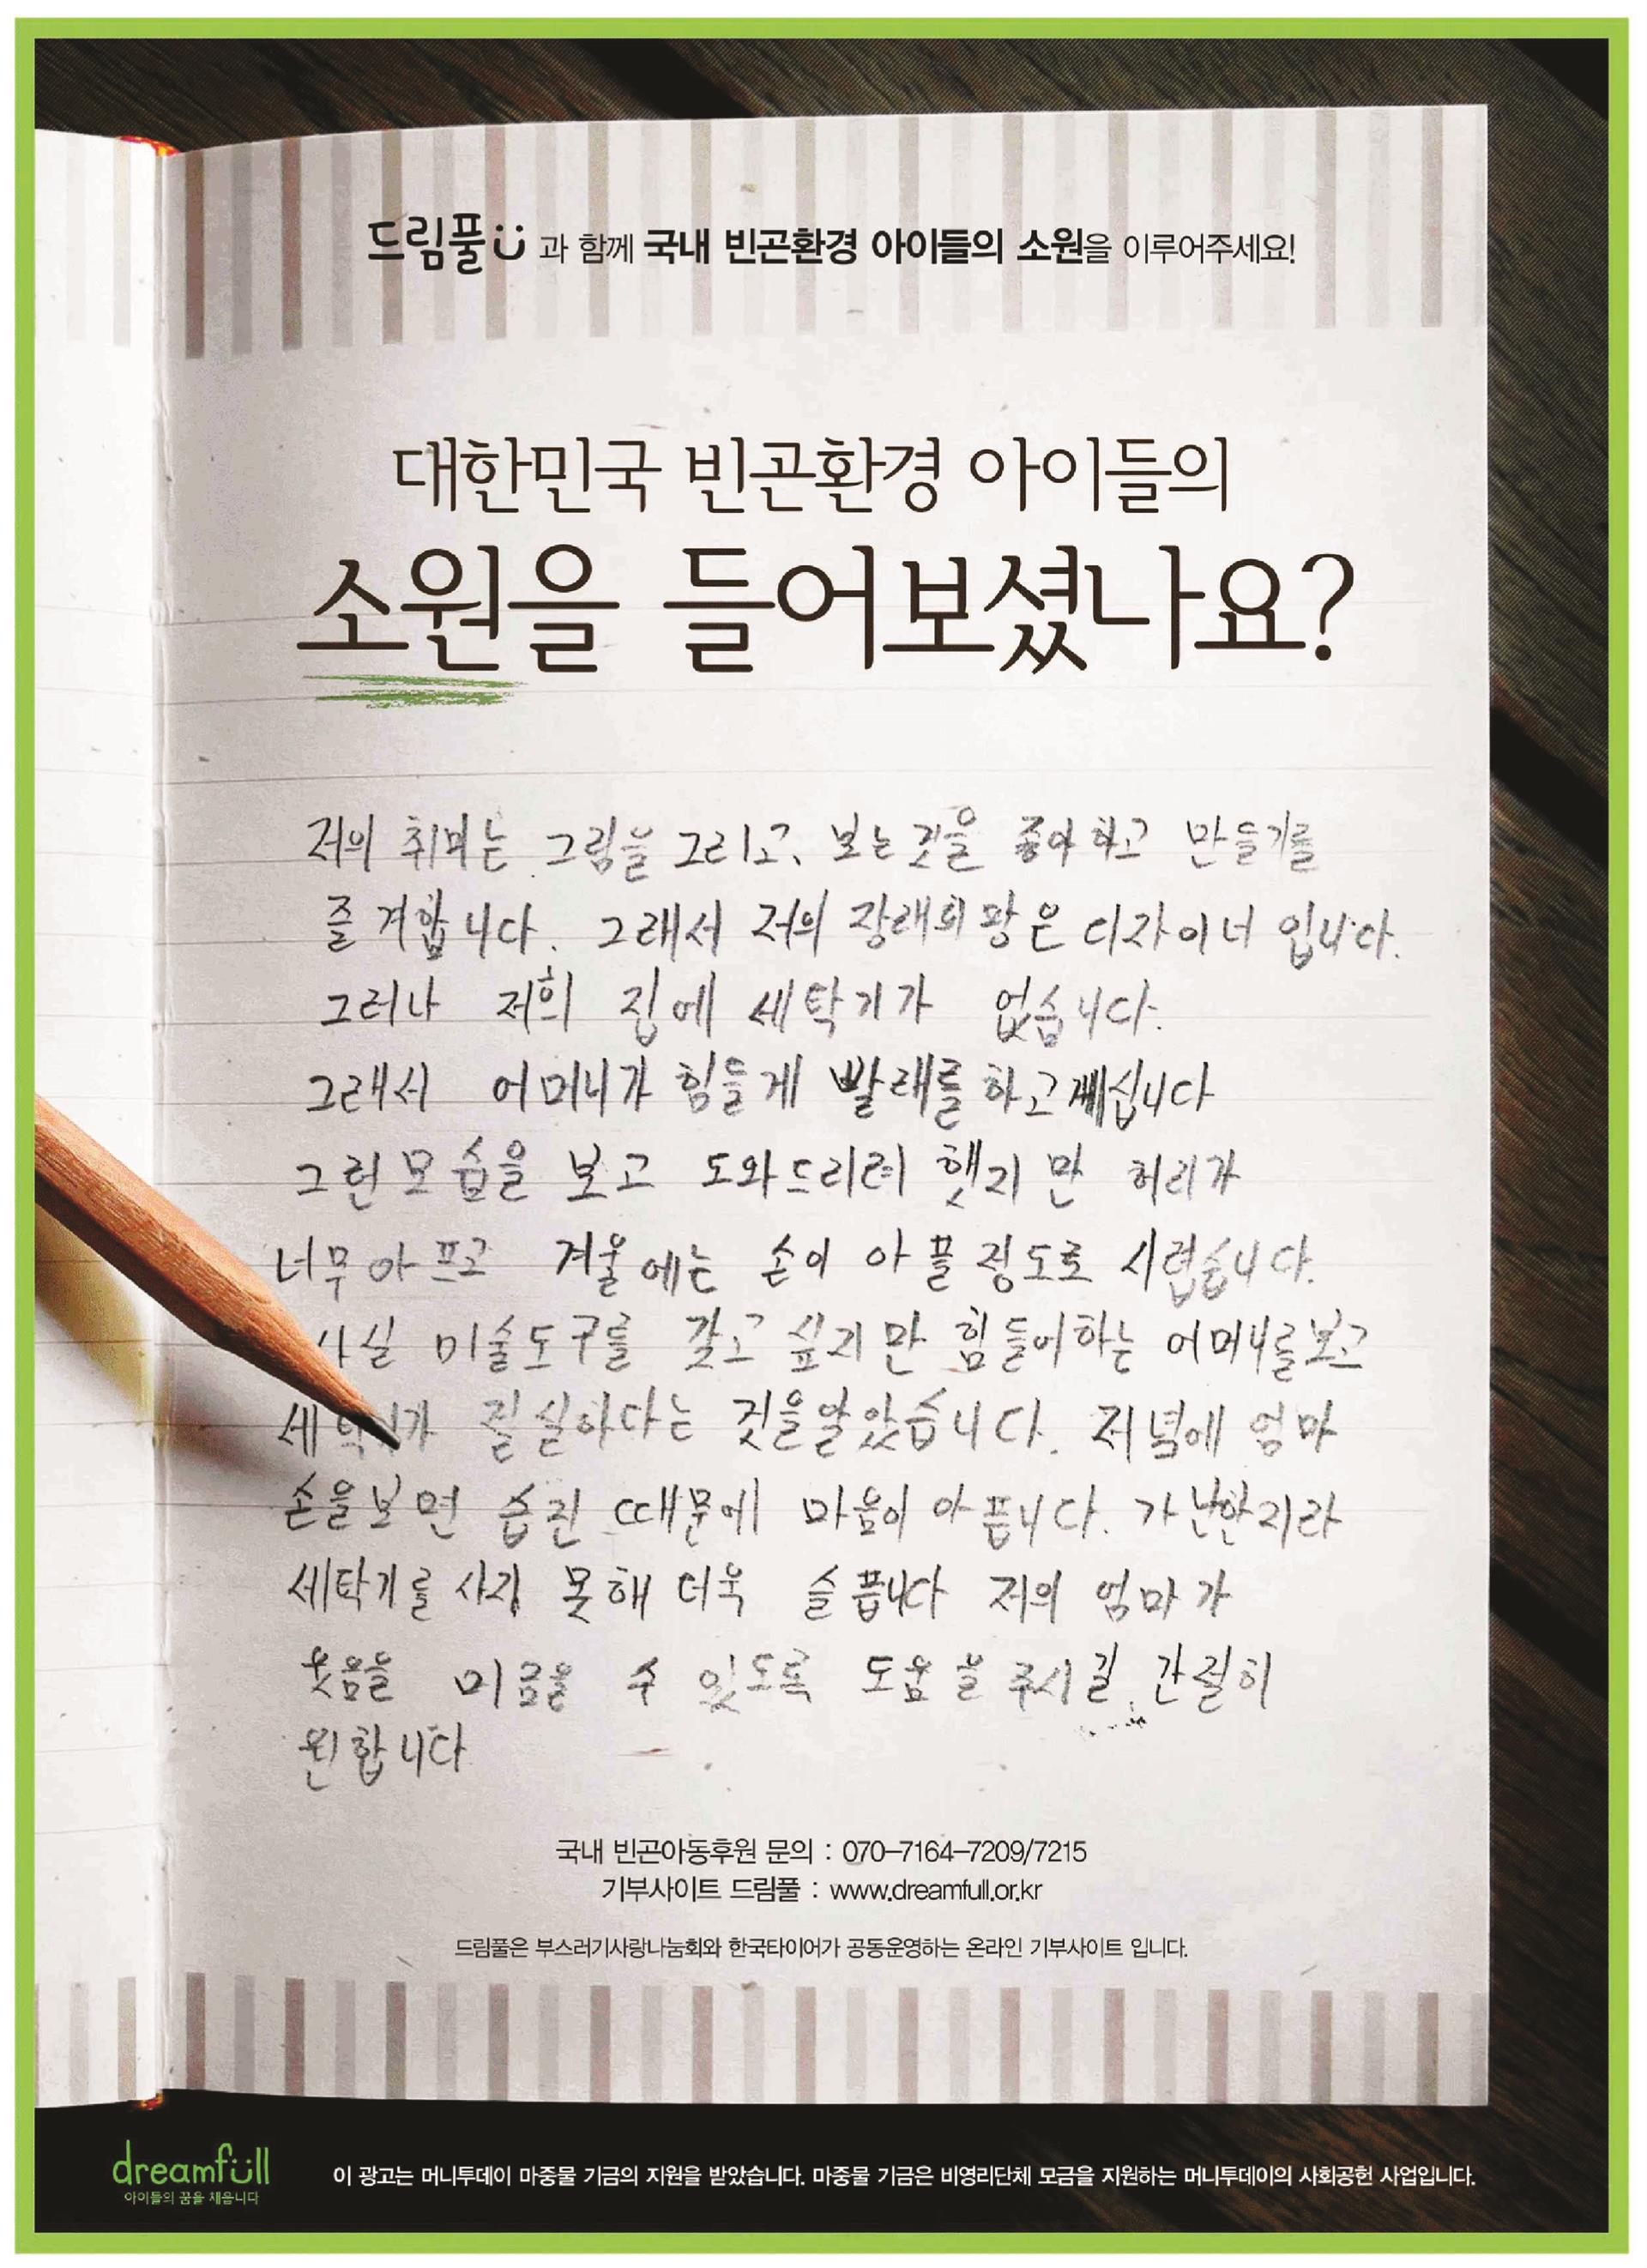 드림풀 과 함께 국내 빈곤환경 아이들의 소원을 이루어주세요!
대한민국 빈곤환경 아이들의
소원을 들어보셨나요?
저의 취미는 그림을 그리고, 보는것을 좋아하고 만들기를
즐겨합니다. 그래서 저의 장래희망은 디자이너 입니다.
그러나 저희 집에 세탁기가 없습니다.
그래서 어머니가 힘들게 빨래를 하고계십니다
그런모습을 보고 도와드리려 햇지만 허리가
너무아프고 겨울에는 손이 아플정도로 시렵습니다.
사실 미술도구를 갖고싶지만 힘들어하는 어머니를보고
세탁기가 절실하다는 것을알았습니다. 저녁에 엄마
손을보면 습진 때문에 마음이 아픕니다. 가난한지라
세탁기를 사지 못해 더욱 슬픕니다 저의 엄마가
웃음을 머금을 수 있도록 도움을 주시길 간절히
원합니다
국내 빈곤아동후원 문의 : 070-7164-7209/7215
기부사이트 드림풀 : www.dreamfull.or.kr
드림풀은 부스러기사랑나눔회와 한국타이어가 공동운영하는 온라인 기부사이트 입니다.
dreamfull
아이들의 꿈을 채웁니다
이 광고는 머니투데이 마중물 기금의 지원을 받았습니다. 마중물 기금은 비영리단체 모금을 지원하는 머니투데이의 사회공헌 사업입니다.